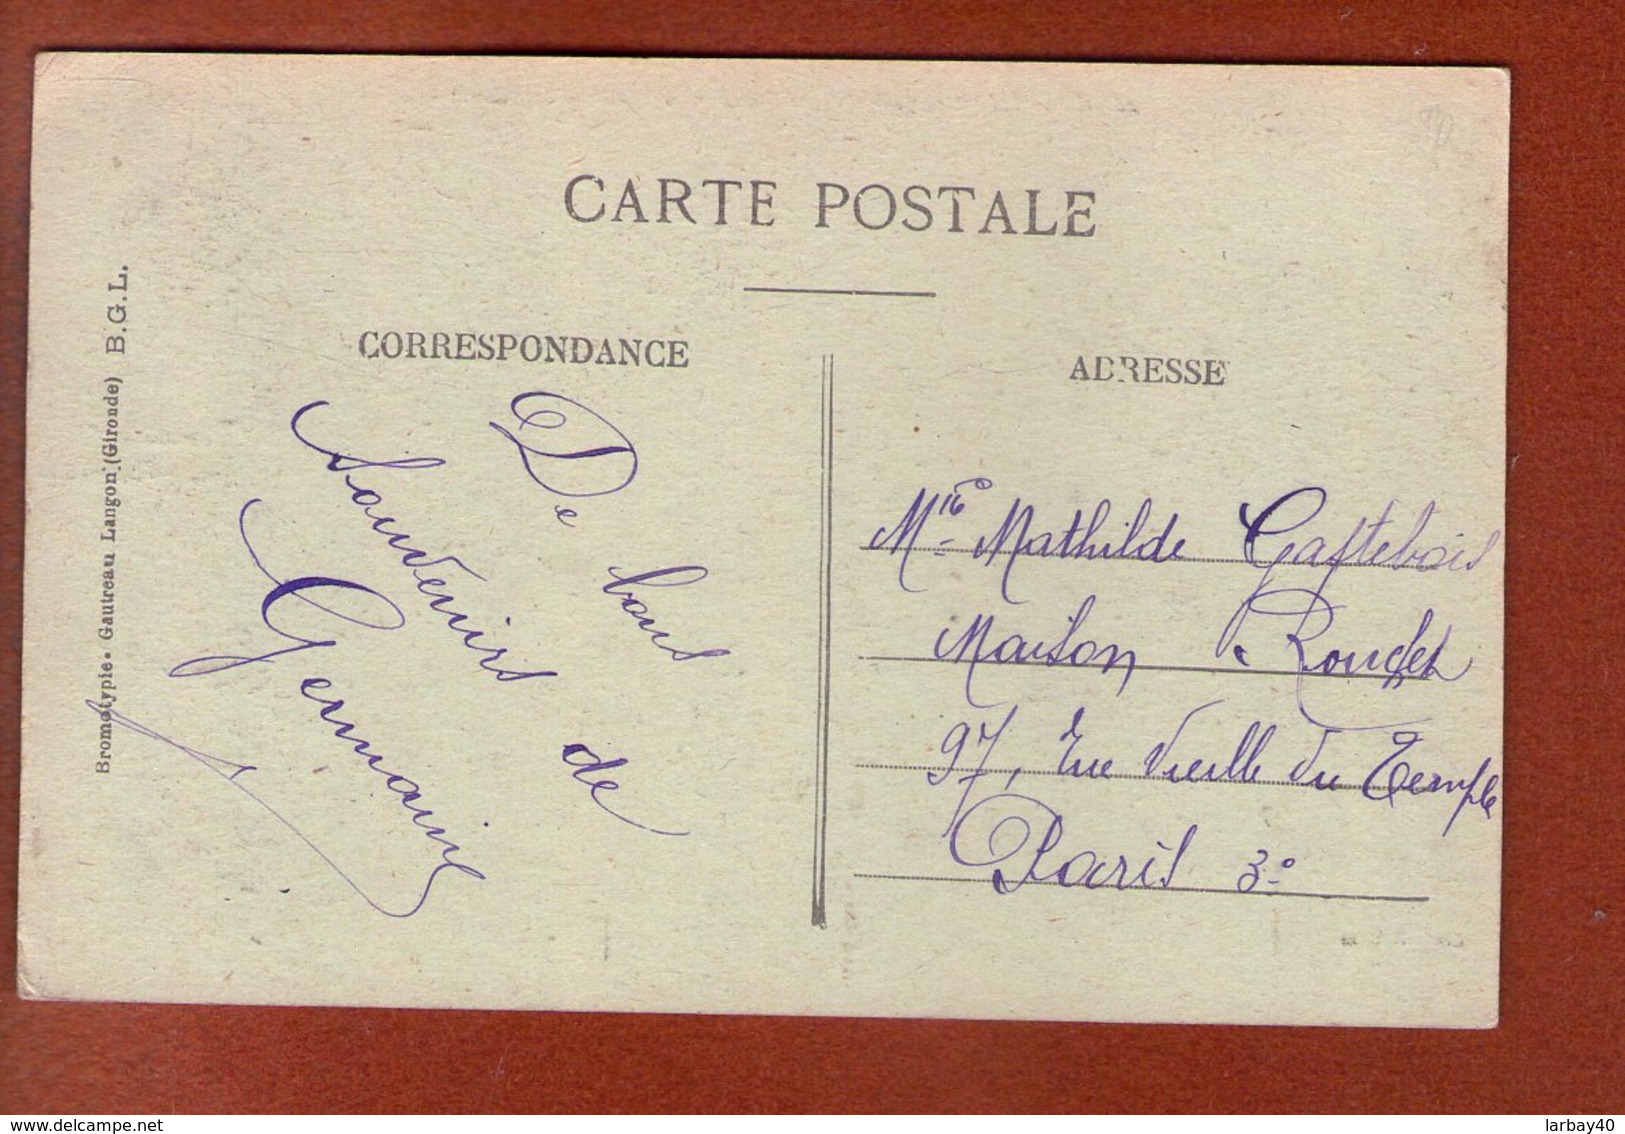 CARTE POSTALE
CORRESPONDANCE
De bons
Souvenirs de
Germaine
ADRESSE
Mlle Mathilde Gastebois
Maison
97, Rue Vieille du Temple
Paris 3e
Bromotypie. Gautreau Langon (Gironde) B.G.L.
delcampe.net
larbay40